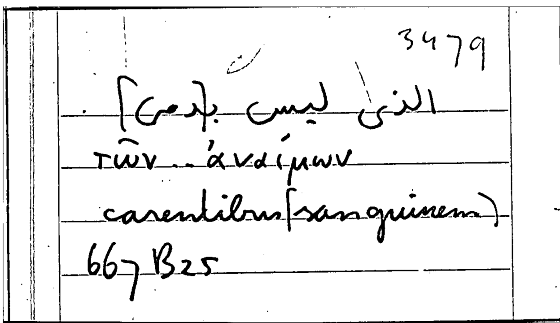 3479
الذى ليس ب[دمى]
τῶν .. ἀναίμων
carentibus (sanguinem)
667 B25